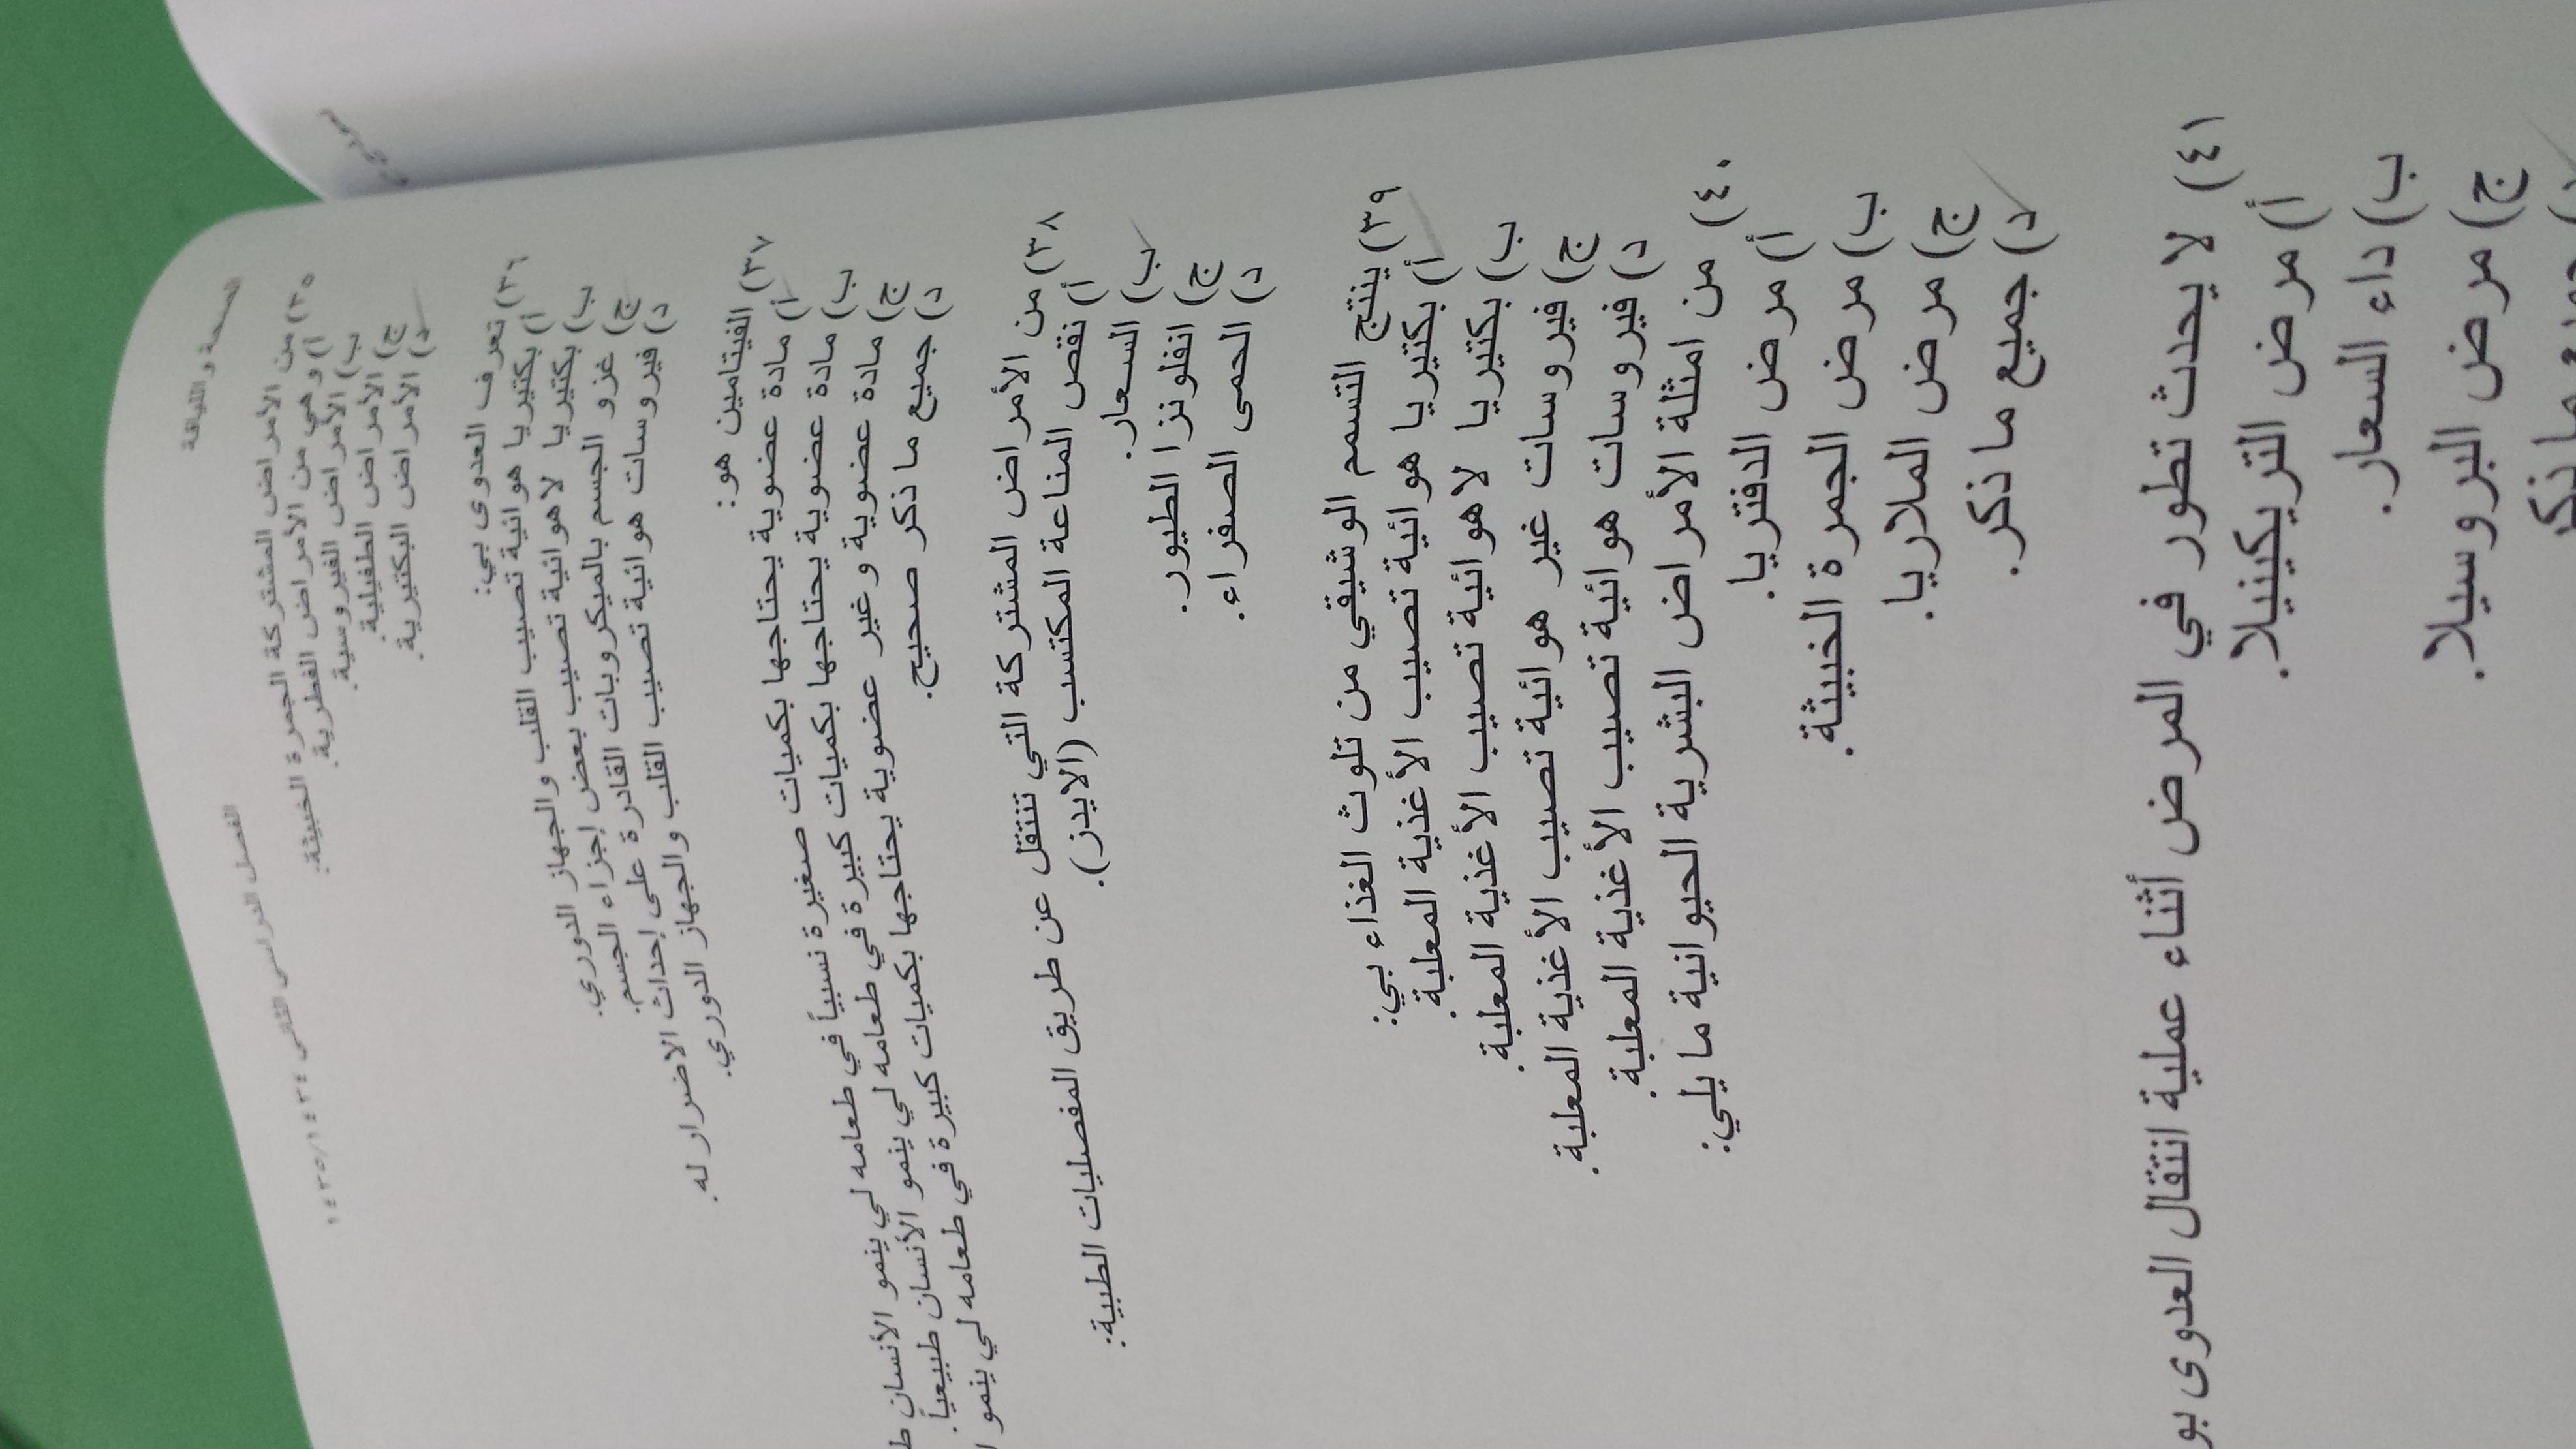 الصحة واللياقة
الفصل الدراسي الثاني ١٤٣٥/١٤٣٤
٣٥) من الأمراض المشتركة الجمرة الخبيثة:
أ) وهي من الأمراض الفطرية.
ب) الأمراض الفيروسية.
ج) الأمراض الطفيلية.
د) الأمراض البكتيرية.
٣٦) تعرف العدوى بي:
أ) بكتيريا هوائية تصيب القلب والجهاز الدوري.
ب) بكتيريا لاهوائية تصيب بعض إجزاء الجسم.
ج) غزو الجسم بالميكروبات القادرة على إحداث الاضرار له.
د) فيروسات هوائية تصيب القلب والجهاز الدوري.
٣٧) الفيتامين هو:
أ) مادة عضوية يحتاجها بكميات صغيرة نسبياً في طعامه لي ينمو الأنسان
ب) مادة عضوية يحتاجها بكميات كبيرة في طعامه لي ينمو الأنسان طبيعياً.
ج) مادة عضوية وغير عضوية يحتاجها بكميات كبيرة في طعامه لي ينمو
د) جميع ما ذكر صحيح.
٣٨) من الأمراض المشتركة التي تنتقل عن طريق المفصليات الطبية:
أ) نقص المناعة المكتسب (الايدز).
ب) السعار.
ج) انفلونزا الطيور.
د) الحمى الصفراء.
٣٩) ينتج التسمم الوشيقي من تلوث الغذاء بي:
أ) بكتيريا هوائية تصيب الأغذية المعلبة.
ب) بكتيريا لاهوائية تصيب الأغذية المعلبة.
ج) فيروسات غير هوائية تصيب الأغذية المعلبة.
د) فيروسات هوائية تصيب الأغذية المعلبة.
٤٠) من امثلة الأمراض البشرية الحيوانية ما يلي:
أ) مرض الدفتريا.
ب) مرض الجمرة الخبيثة.
ج) مرض الملاريا.
د) جميع ما ذكر.
٤١) لا يحدث تطور في المرض أثناء عملية انتقال العدوى بو
أ) مرض التريكينيلا.
ب) داء السعار.
ج) مرض البروسيلا.
د) جميع ما ذكر